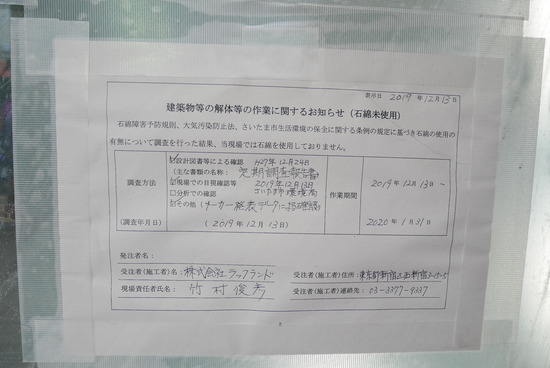 表示日 2019年12月13日
建築物等の解体等の作業に関するお知らせ（石綿未使用）
石綿障害予防規則、大気汚染防止法、さいたま市生活環境の保全に関する条例の規定に基づき石綿の使用の
有無について調査を行った結果、当現場では石綿を使用しておりません。
調査方法
設計図書等による確認 H29年12月24日
(主な書類の名称: 定期調査報告書)
現場での目視確認等 2019年12月13日
分析での確認 さいたま市環境局
その他（メーカー発表データによる確認）
(調査年月日) (2019年12月13日)
作業期間
2019年12月13日～
2020年1月31日
発注者名：
受注者(施工者)名：株式会社ラックランド
受注者(施工者)住所：東京都新宿区西新宿3-18-
現場責任者氏名：竹村俊彦
受注者(施工者)連絡先：03-3377-9337